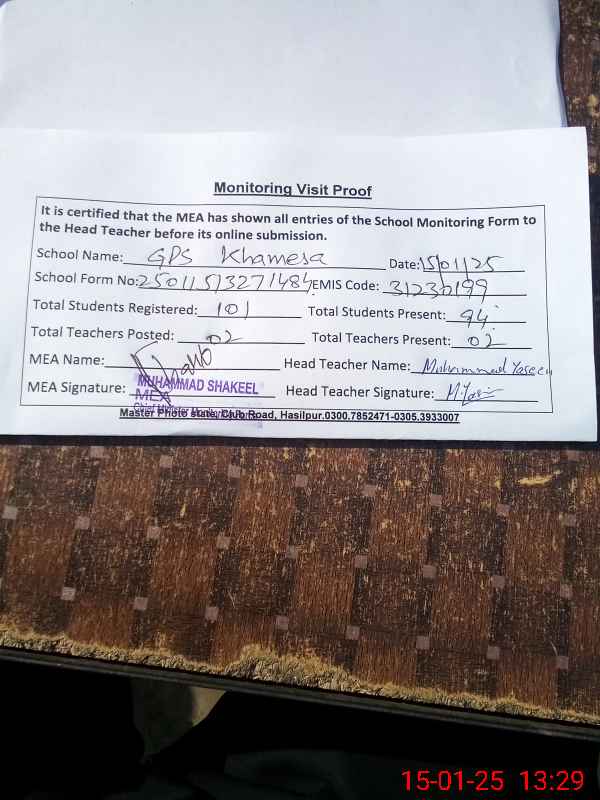 Monitoring Visit Proof
It is certified that the MEA has shown all entries of the School Monitoring Form to
the Head Teacher before its online submission.
School Name: GPS Khamesa Date: 15/01/25
School Form No: 250115132711484 EMIS Code: 31230199
Total Students Registered: 101 Total Students Present: 94
Total Teachers Posted: 02 Total Teachers Present: 02
MEA Name: Head Teacher Name: Muhammad Yaseen
MEA Signature: MUHAMMAD SHAKEEL Head Teacher Signature: M.Yasin
MEA
Chief Minister
Master Photo state, Club Road, Hasilpur.0300.7852471-0305.3933007
15-01-25 13:29